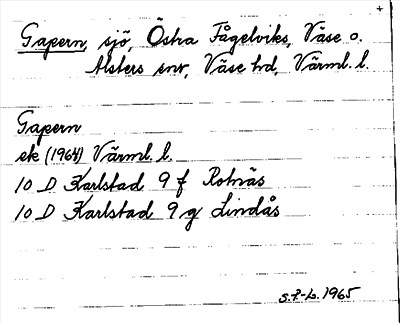 Gapern, sjö, Östra Fågelviks, Väse o.
Alsters snr, Väse hd, Värml. l.
Gapern
ek (1964) Värml. l.
10 D Karlstad 9 f Rotnäs
10 D Karlstad 9 g Lindås
S.F-L. 1965